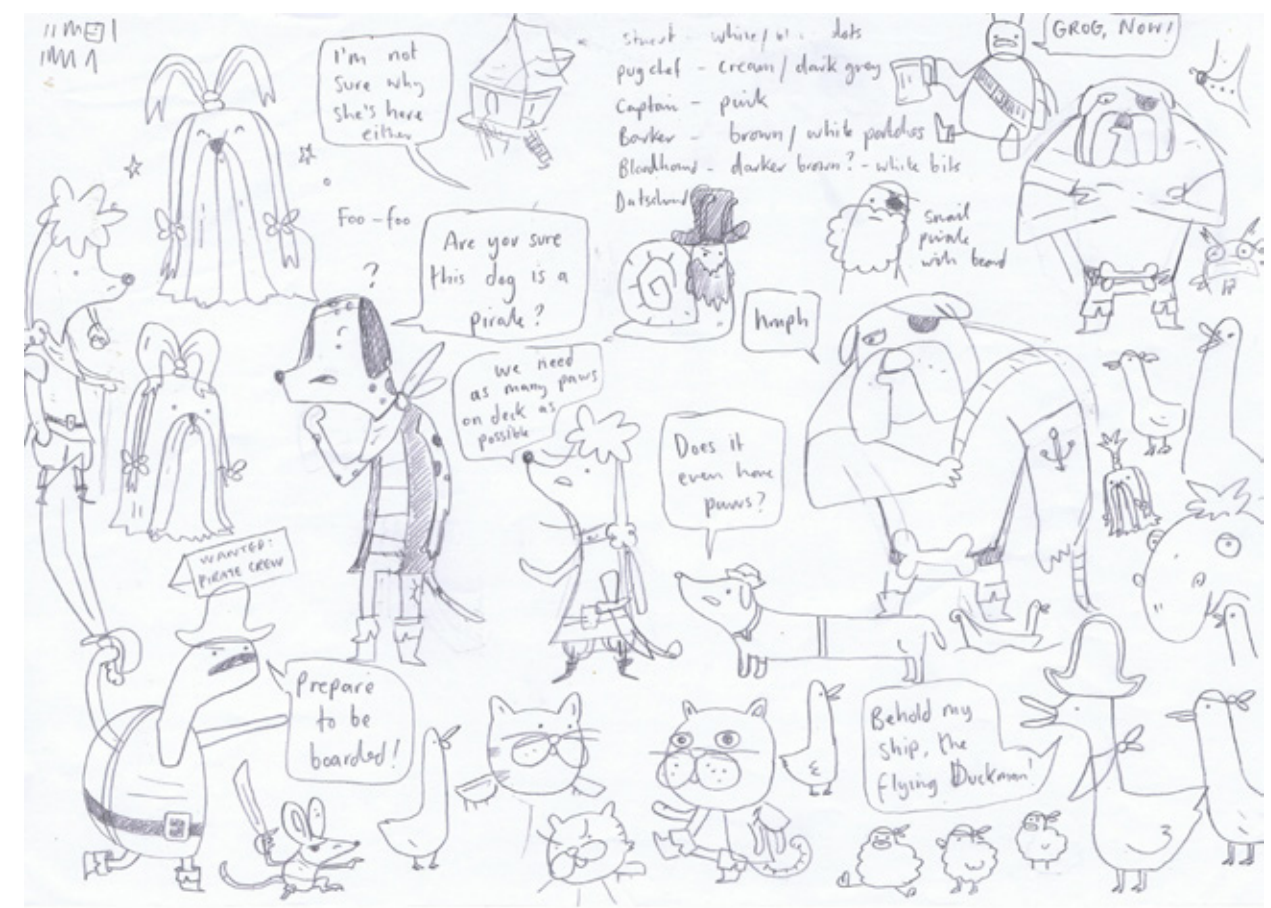 I'm not
sure why
she's here
either
Stuart - white / bl. dots
pug chef - cream / dark grey
Captain - pink
Barker - brown / white patches
Bloodhound - darker brown? - white bits
Datschund
GROG, NOW!
Foo-foo
?
Are you sure
this dog is a
pirate?
Snail
pirate
with beard
hmph
we need
as many paws
on deck as
possible
Does it
even have
paws?
WANTED:
PIRATE CREW
Prepare
to be
boarded!
Behold my
ship, the
flying Duckman!